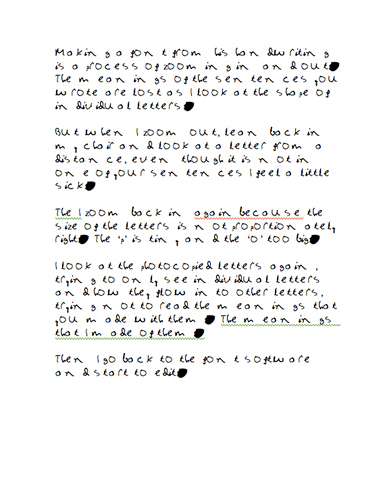 Making a font from his handwriting
is a process of zooming in and out.
The meanings of the sentences you
wrote are lost as I look at the shape of
individual letters.
But when I zoom out, lean back in
my chair and look at a letter from a
distance, even though it is not in
one of your sentences I feel a little
sick.
The I zoom back in again because the
size of the letters is not proportionately
right. The 'p' is tiny and the 'O' too big.
I look at the photocopied letters again,
trying to only see individual letters
and how they flow into other letters,
trying not to read the meanings that
you made with them. The meanings
that I made of them.
Then I go back to the font software
and start to edit.